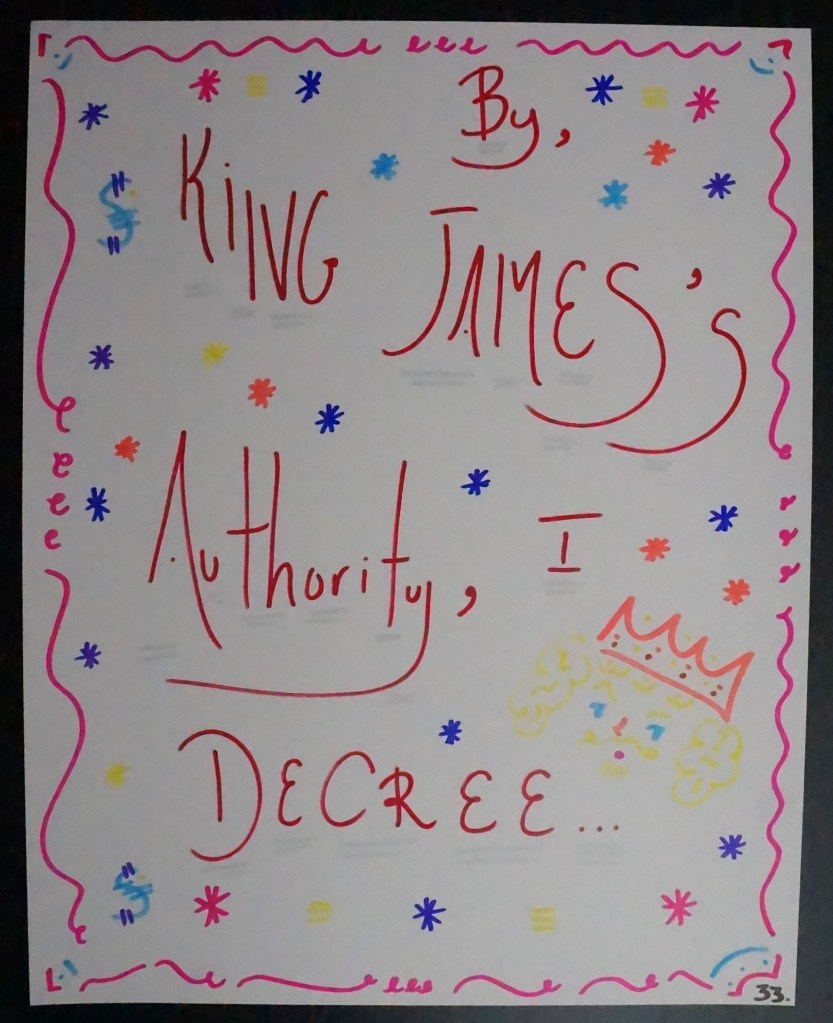 By,
KiNG
JAMES's
Authority, I
DECREE...
33.